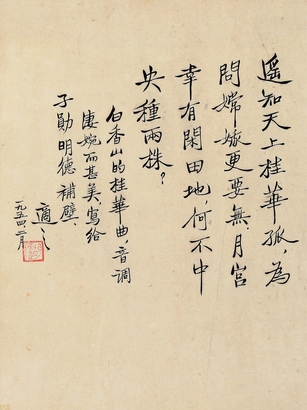 遙知天上桂華孤，為
問嫦娥更要無，月宮
幸有閑田地，何不中
央種兩株？
白香山的桂華曲，音調
淒婉而甚美，寫給
子勛明德補壁。
適之
一九五四、二月